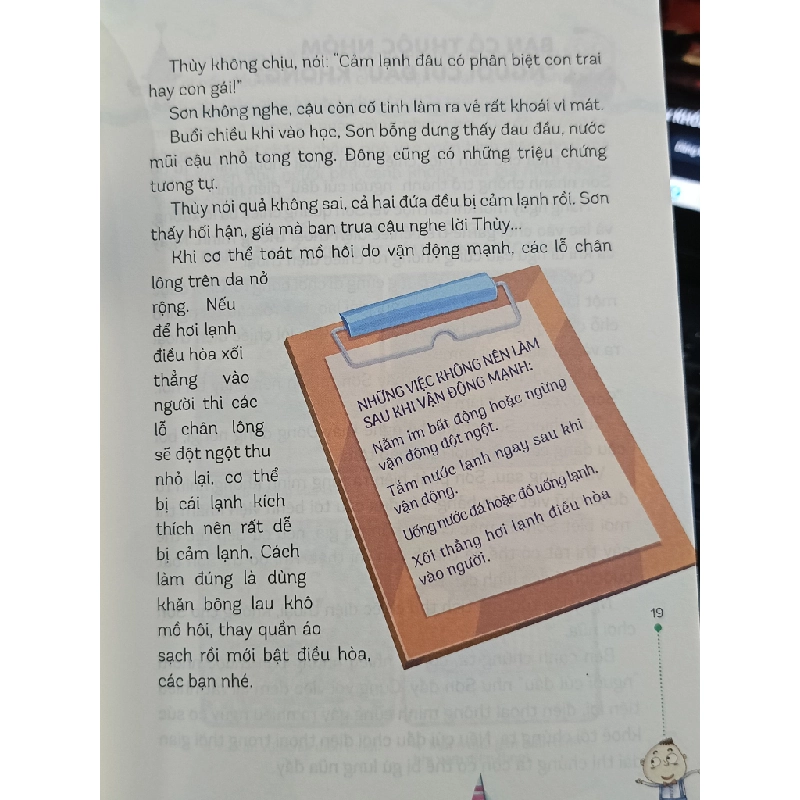 Thùy không chịu, nói: "Cảm lạnh đâu có phân biệt con trai
hay con gái!"
Sơn không nghe, cậu còn cố tình làm ra vẻ rất khoái vì mát.
Buổi chiều khi vào học, Sơn bỗng dưng thấy đau đầu, nước
mũi cậu nhỏ tong tong. Đông cũng có những triệu chứng
tương tự.
Thùy nói quả không sai, cả hai đứa đều bị cảm lạnh rồi. Sơn
thấy hối hận, giá mà ban trưa cậu nghe lời Thùy...
Khi cơ thể toát mồ hôi do vận động mạnh, các lỗ chân
lông trên da nở
rộng. Nếu
để hơi lạnh
điều hòa xối
thẳng vào
người thì các
lỗ chân lông
sẽ đột ngột thu
nhỏ lại, cơ thể
bị cái lạnh kích
thích nên rất dễ
bị cảm lạnh. Cách
làm đúng là dùng
khăn bông lau khô
mồ hôi, thay quần áo
sạch rồi mới bật điều hòa,
các bạn nhé.
NHỮNG VIỆC KHÔNG NÊN LÀM
SAU KHI VẬN ĐỘNG MẠNH:
Nằm im bất động hoặc ngừng
vận động đột ngột.
Tắm nước lạnh ngay sau khi
vận động.
Uống nước đá hoặc đồ uống lạnh.
Xối thẳng hơi lạnh điều hòa
vào người.
19